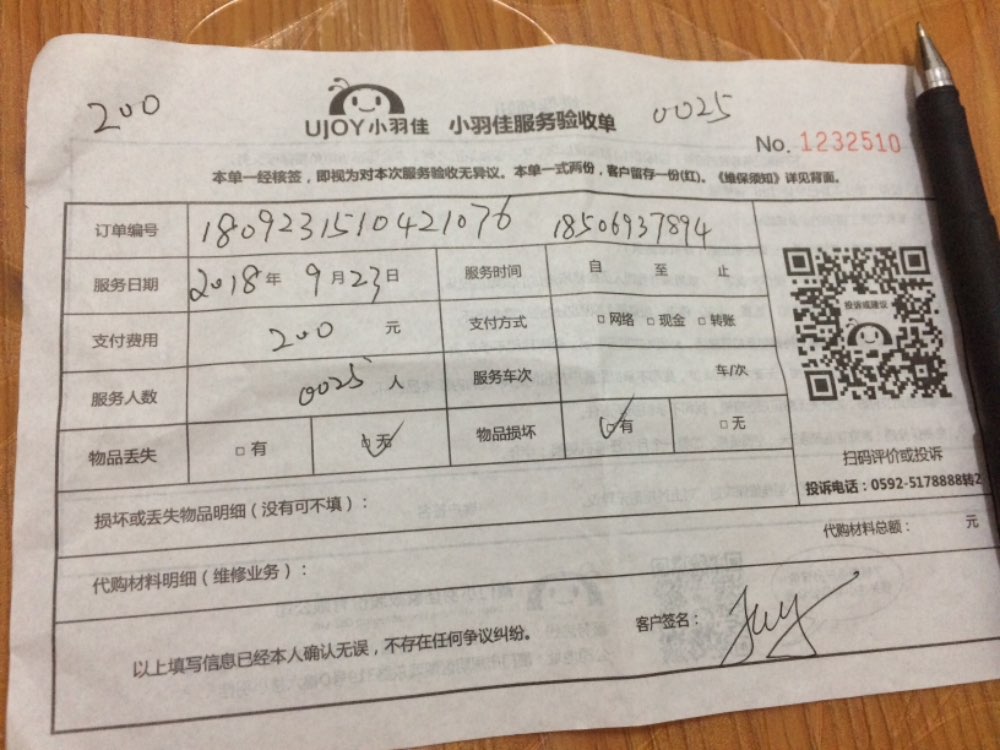 200
UJOY小羽佳 小羽佳服务验收单 0025
No. 1232510
本单一经核签，即视为对本次服务验收无异议。本单一式两份，客户留存一份(红)。《维保须知》详见背面。
订单编号 1809231510421076 18506937894
服务日期 2018年 9月23日 服务时间 自 至 止
支付费用 200 元 支付方式 □网络 □现金 □转账
服务人数 0025 人 服务车次 车/次
物品丢失 □有 □无 物品损坏 □有 □无
投诉或建议
扫码评价或投诉
投诉电话：0592-5178888转2
损坏或丢失物品明细（没有可不填）：
代购材料总额： 元
代购材料明细（维修业务）：
以上填写信息已经本人确认无误，不存在任何争议纠纷。
客户签名：